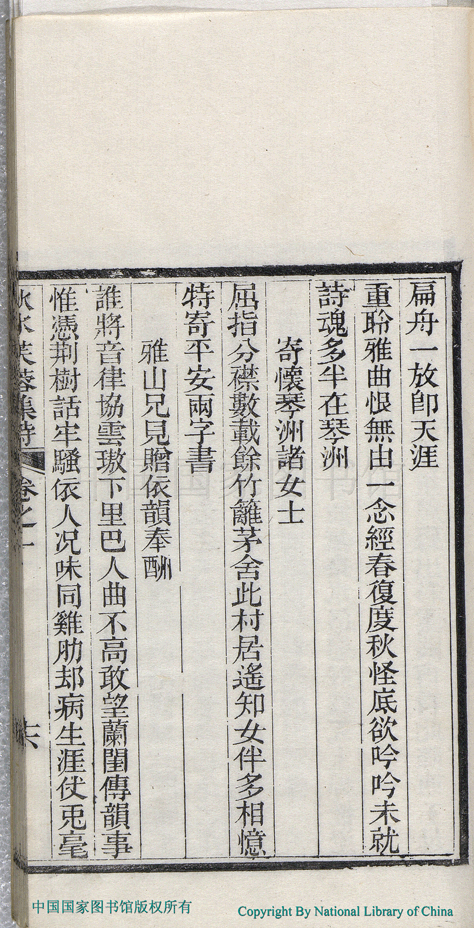 扁舟一放卽天涯
重聆雅曲恨無由一念經春復度秋怪底欲吟吟未就
詩魂多半在琴洲
寄懷琴洲諸女士
屈指分襟數載餘竹籬茅舍此村居遙知女伴多相憶
特寄平安兩字書
雅山兄見贈依韻奉酬
誰將音律協雲璈下里巴人曲不高敢望蘭閨傳韻事
惟憑荆樹話牢騷依人况味同雞肋却病生涯仗兎毫
芙蓉集詩 卷之一
中国国家图书馆版权所有
Copyright By National Library of China